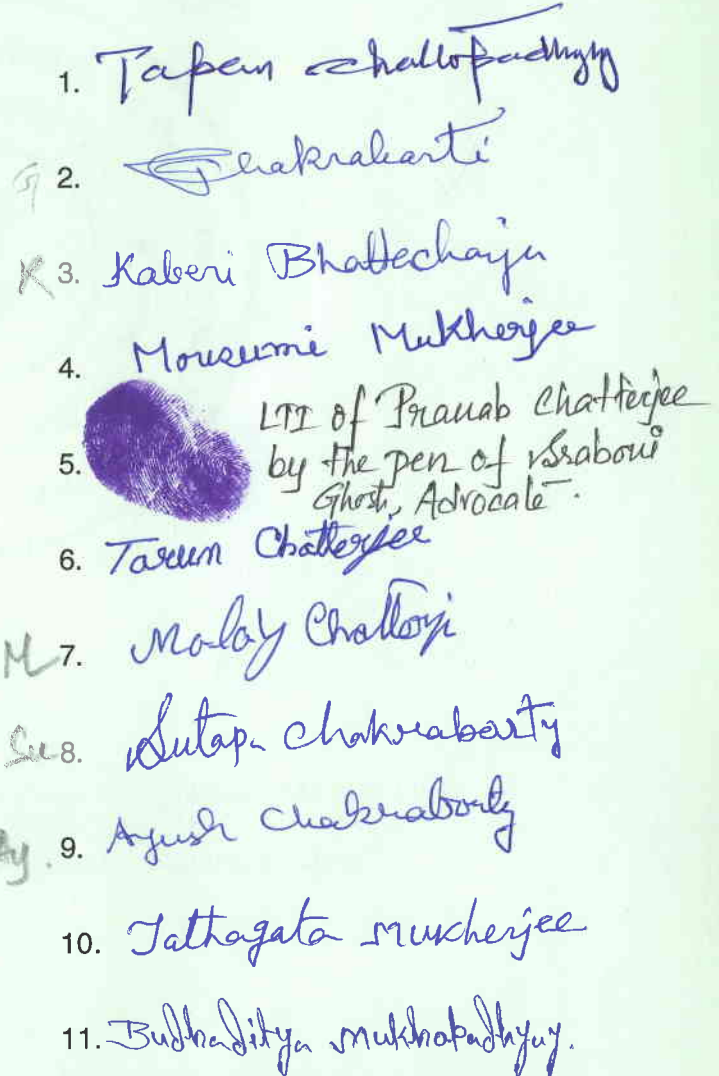 1. Tapan Chattopadhyay
G 2. Chakrabarti
K 3. Kaberi Bhattecharjee
4. Mousumi Mukherjee
5. LTI of Pranab Chatterjee
by the pen of Sraboni
Ghosh, Advocate.
6. Tarun Chatterjee
M 7. Malay Chatterji
Su 8. Sutapa Chakraborty
Ay. 9. Ayush Chakraborty
10. Tathagata Mukherjee
11. Budhaditya Mukhopadhyay.